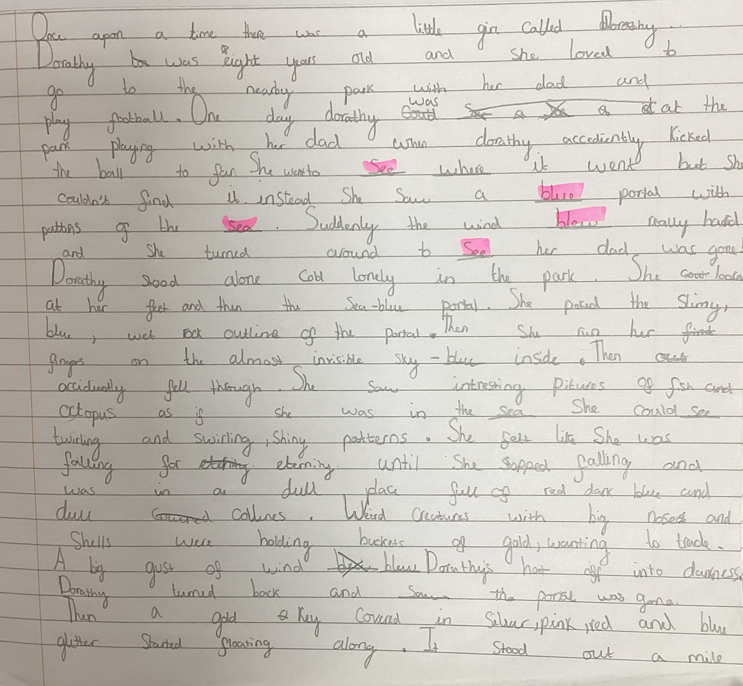 Once upon a time there was a little girl called Dorathy.
Dorathy was eight years old and she loved to
go to the nearby park with her dad and
play football. One day dorathy was at the
park playing with her dad when dorathy accediently kicked
the ball to far She went to See where it went but She
couldn't find it instead She Saw a blue portal with
pattons of the sea. Suddenly the wind blew really hard
and she turned around to See her dad was gone!
Dorathy stood alone Cold lonely in the park. She looked
at her feet and then the Sea-blue portal. She poked the Slimy,
blue, wet rock outline of the portal. Then she run her
fingers on the almost invisible sky-blue inside. Then
accidently fell through. She Saw intresting pitures of fish and
octopus as if she was in the sea She could see
twirling and swirling, shiny patterns. She felt like She was
falling for eternity until She stopped falling and
was in a dull place full of red dark blue and
dull Collines. Weird Creatures with big noses and
Shells were holding buckets of gold, wanting to trade.
A big gust of wind blew Dorathy's hat off into darkness.
Dorathy turned back and Saw the portal was gone.
Then a gold Key Covered in Silver, pink, red and blue
glitter Started floating along. It Stood out a mile